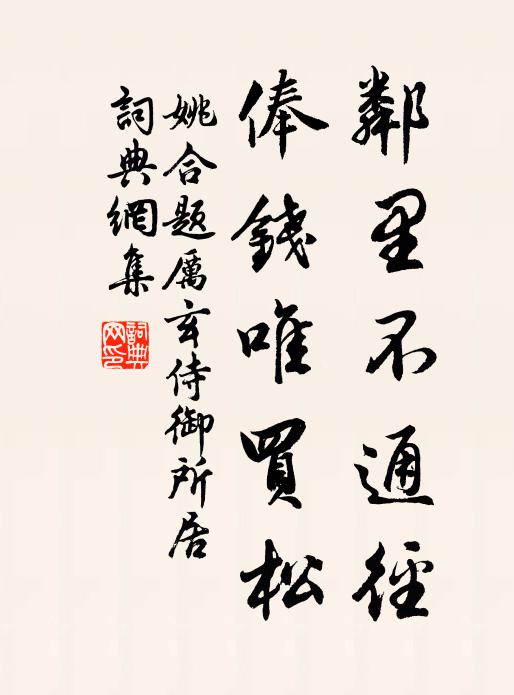 鄰里不通徑
俸錢唯買松
姚合題厲玄侍御所居
詞典網集
詞典網印